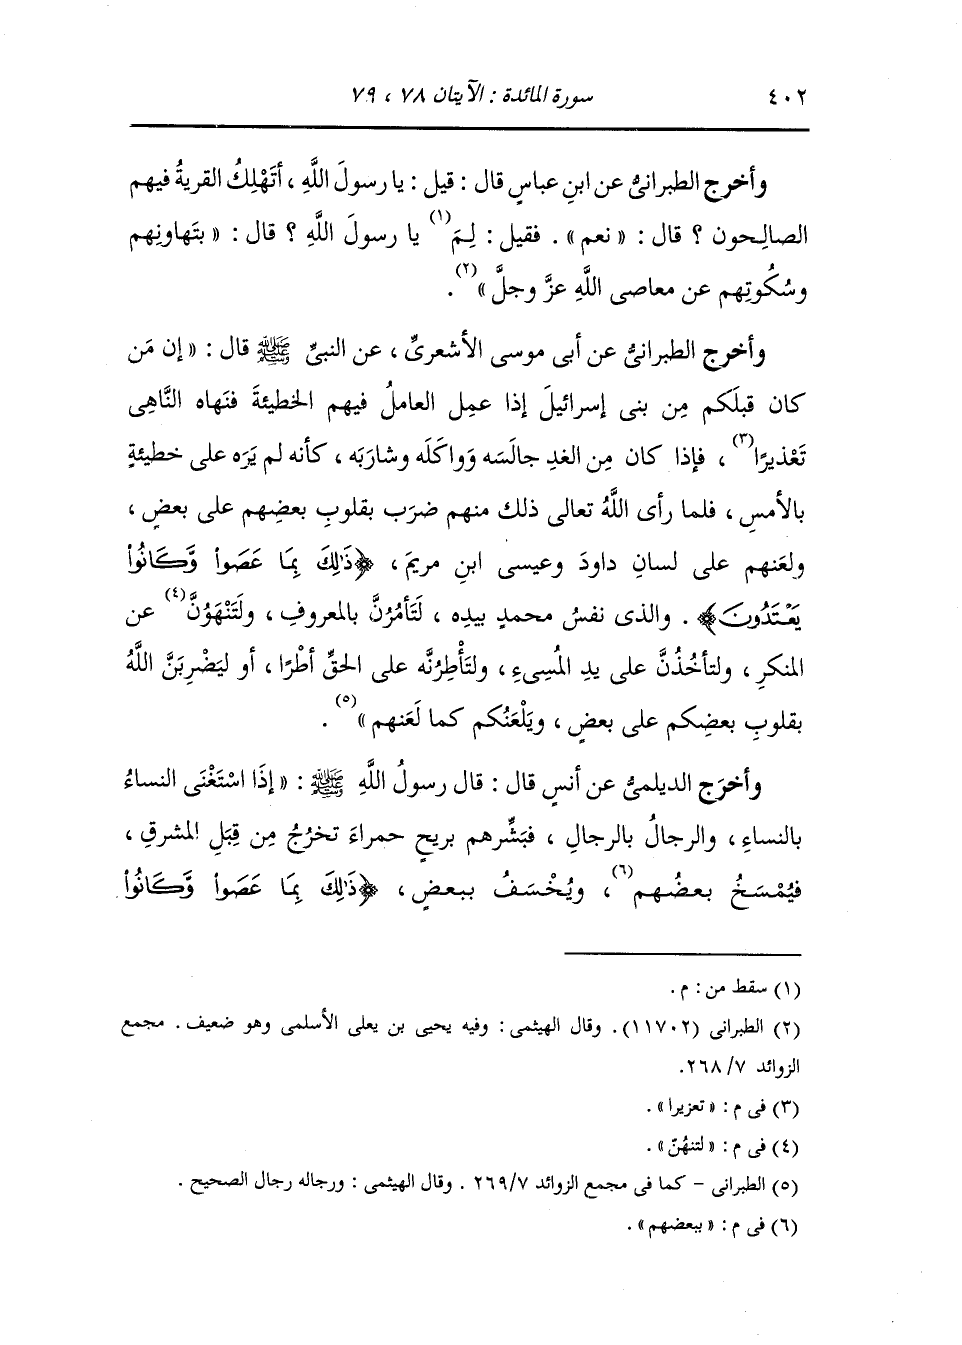 ٤٠٢ سورة المائدة : الآيتان ٧٨ ، ٧٩
وأخرج الطبرانىُّ عن ابنِ عباسٍ قال : قيل : يا رسولَ اللَّهِ ، أتَهْلِكُ القريةُ فيهم
الصالِحون ؟ قال : « نعم » . فقيل : لِمَ(١) يا رسولَ اللَّهِ ؟ قال : « بتَهاونِهم
وسُكُوتِهم عن معاصى اللَّهِ عزَّ وجلَّ »(٢) .
وأخرج الطبرانىُّ عن أبى موسى الأشعرىِّ ، عن النبىِّ ﷺ قال : « إن مَن
كان قبلَكم مِن بنى إسرائيلَ إذا عمِل العاملُ فيهم الخطيئةَ فنَهاه النَّاهِى
تَعْذيرًا(٣) ، فإذا كان مِن الغدِ جالَسه وَواكَلَه وشارَبَه ، كأنه لم يَرَه على خطيئةٍ
بالأمسِ ، فلما رأى اللَّهُ تعالى ذلك منهم ضرَب بقلوبِ بعضِهم على بعضٍ ،
ولعَنهم على لسانِ داودَ وعيسى ابنِ مريمَ ، ﴿ذَٰلِكَ بِمَا عَصَوا۟ وَّكَانُوا۟
يَعْتَدُونَ﴾ . والذى نفسُ محمدٍ بيدِه ، لَتَأمُرُنَّ بالمعروفِ ، ولَتَنْهَوُنَّ(٤) عن
المنكرِ ، ولتأخُذُنَّ على يدِ المُسِىءِ ، ولتَأْطِرُنَّه على الحقِّ أطْرًا ، أو ليَضْرِبَنَّ اللَّهُ
بقلوبِ بعضِكم على بعضٍ ، ويَلْعَنُكم كما لَعَنهم »(٥) .
وأخرَج الديلمىُّ عن أنسٍ قال : قال رسولُ اللَّهِ ﷺ : « إذَا اسْتَغْنَى النساءُ
بالنساءِ ، والرجالُ بالرجالِ ، فبَشِّرهم بريحٍ حمراءَ تخرُجُ مِن قِبَلِ المشرقِ ،
فيُمْسَخُ بعضُهم(٦) ، ويُخْسَفُ ببعضٍ ، ﴿ذَٰلِكَ بِمَا عَصَوا۟ وَّكَانُوا۟
(١) سقط من : م .
(٢) الطبرانى (١١٧٠٢) . وقال الهيثمى : وفيه يحيى بن يعلى الأسلمى وهو ضعيف . مجمع
الزوائد ٢٦٨/٧.
(٣) فى م : « تعزيرا » .
(٤) فى م : « لتنهُنّ » .
(٥) الطبرانى - كما فى مجمع الزوائد ٢٦٩/٧ . وقال الهيثمى : ورجاله رجال الصحيح .
(٦) فى م : « ببعضهم » .